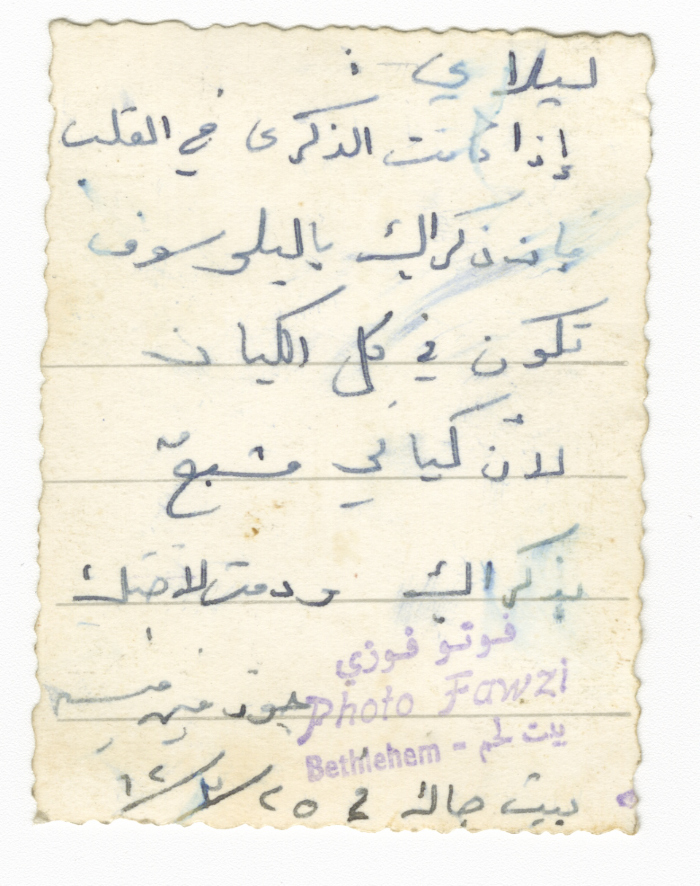 ليلاي :
إذا كانت الذكرى في القلب
فإن ذكراك يا ليلى سوف
تكون في كل الكيان
لأن كياني مشبع
بذكراك ودمت لأختك
فوتو فوزي
Photo Fawzi
بيت لحم - Bethlehem
بيت جالا في ٢٥